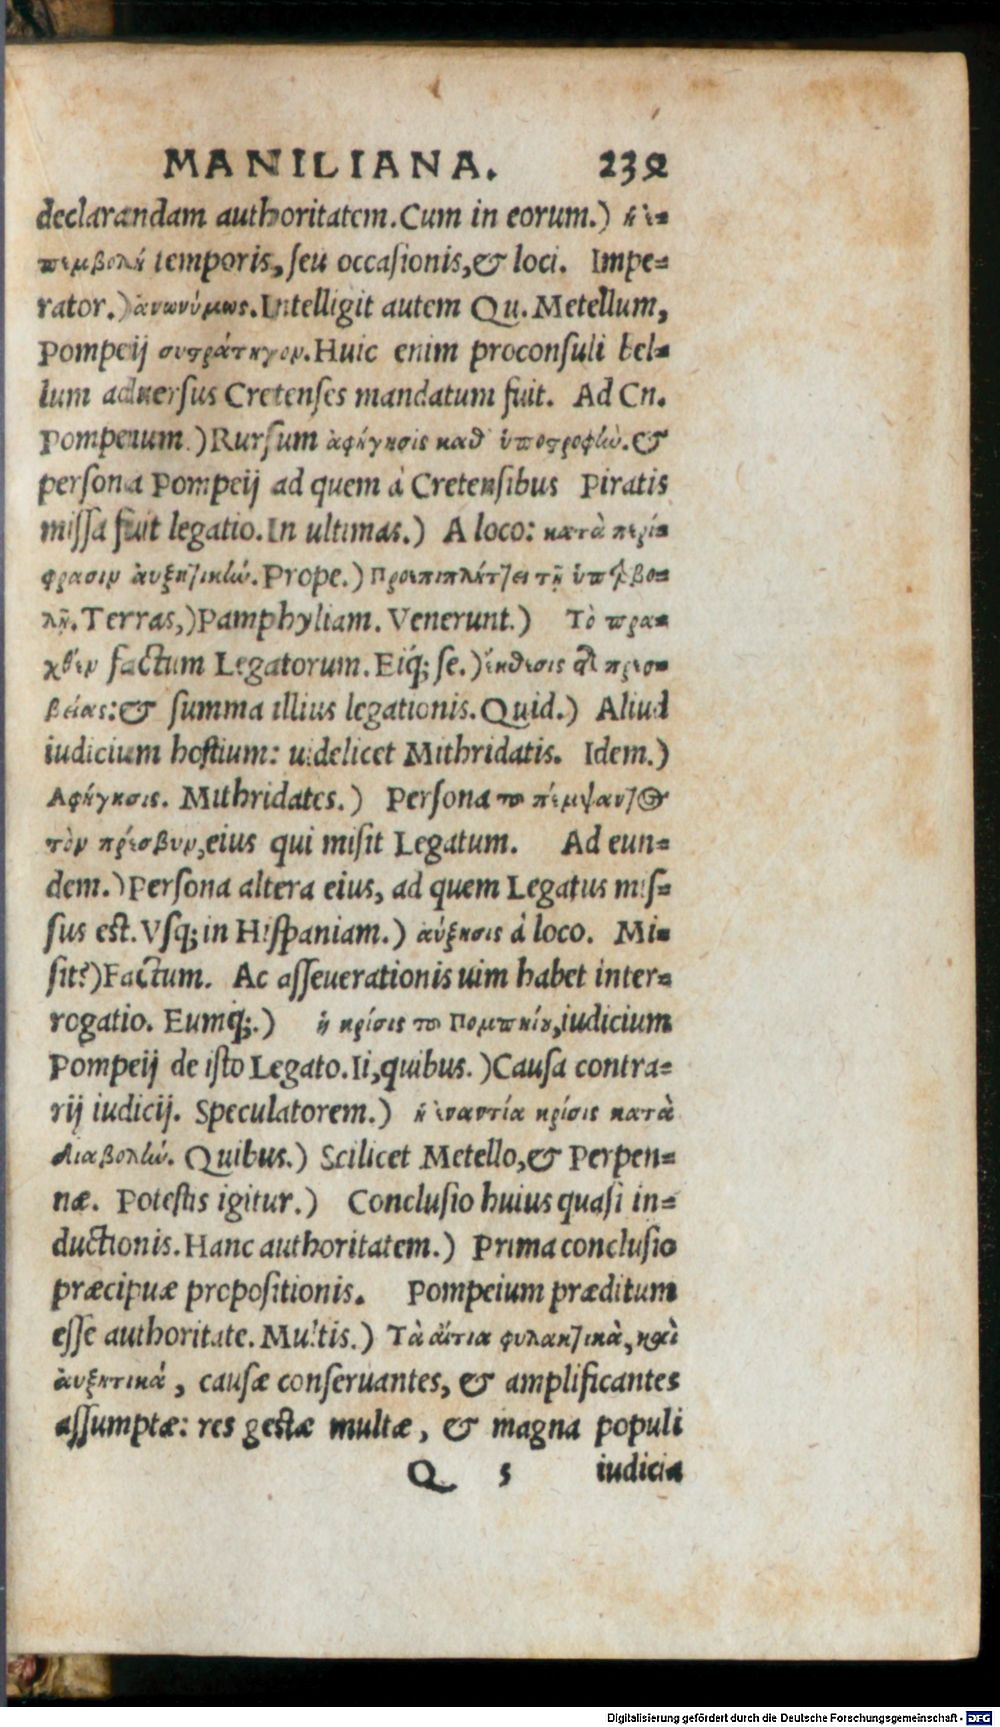 MANILIANA. 239
declarandam authoritatem. Cum in eorum.) ἡ ἐ-
πεμβολὴ temporis, seu occasionis, & loci. Impe=
rator.) ἀνωνύμως. Intelligit autem Qu. Metellum,
Pompeij συστράτηγον. Huic enim proconsuli bel=
lum aduersus Cretenses mandatum fuit. Ad Cn.
Pompeium.) Rursum ἀφήγησις καθ' ὑποστροφὼ. &
persona Pompeij ad quem à Cretensibus Piratis
missa fuit legatio. In ultimas.) A loco: κατὰ περί=
φρασιν ἀυξητικὼ. Prope.) Προεπιπλήττει τῇ ὑπερβο=
λῇ. Terras,) Pamphyliam. Venerunt.) Τὸ πρα=
χθὲν factum Legatorum. Eiq́; se.) ἔκθεσις τῆ πρεσ=
βείας: & summa illius legationis. Quid.) Aliud
iudicium hostium: uidelicet Mithridatis. Idem.)
Αφήγησις. Mithridates.) Persona τοῦ πέμψαντ@
τὸν πρέσβυν, eius qui misit Legatum. Ad eun=
dem.) Persona altera eius, ad quem Legatus mis=
sus est. Vsq; in Hispaniam.) αὔξησις á loco. Mi=
sit?) Factum. Ac asseuerationis uim habet inter=
rogatio. Eumq́;.) ἡ κρίσις τοῦ Πομπηίου, iudicium
Pompeij de isto Legato. Ii, quibus.) Causa contra=
rij iudicij. Speculatorem.) ἡ ἐναντία κρίσις κατὰ
διαβολὼ. Quibus.) Scilicet Metello, & Perpen=
næ. Potestis igitur.) Conclusio huius quasi in=
ductionis. Hanc authoritatem.) Prima conclusio
præcipuæ propositionis. Pompeium præditum
esse authoritate. Multis.) Τὰ αἴτια φυλακτικὰ, καὶ
ἀυξητικά, causæ conseruantes, & amplificantes
assumptæ: res gestæ multæ, & magna populi
Q 5 iudicia
Digitalisierung gefördert durch die Deutsche Forschungsgemeinschaft - DFG